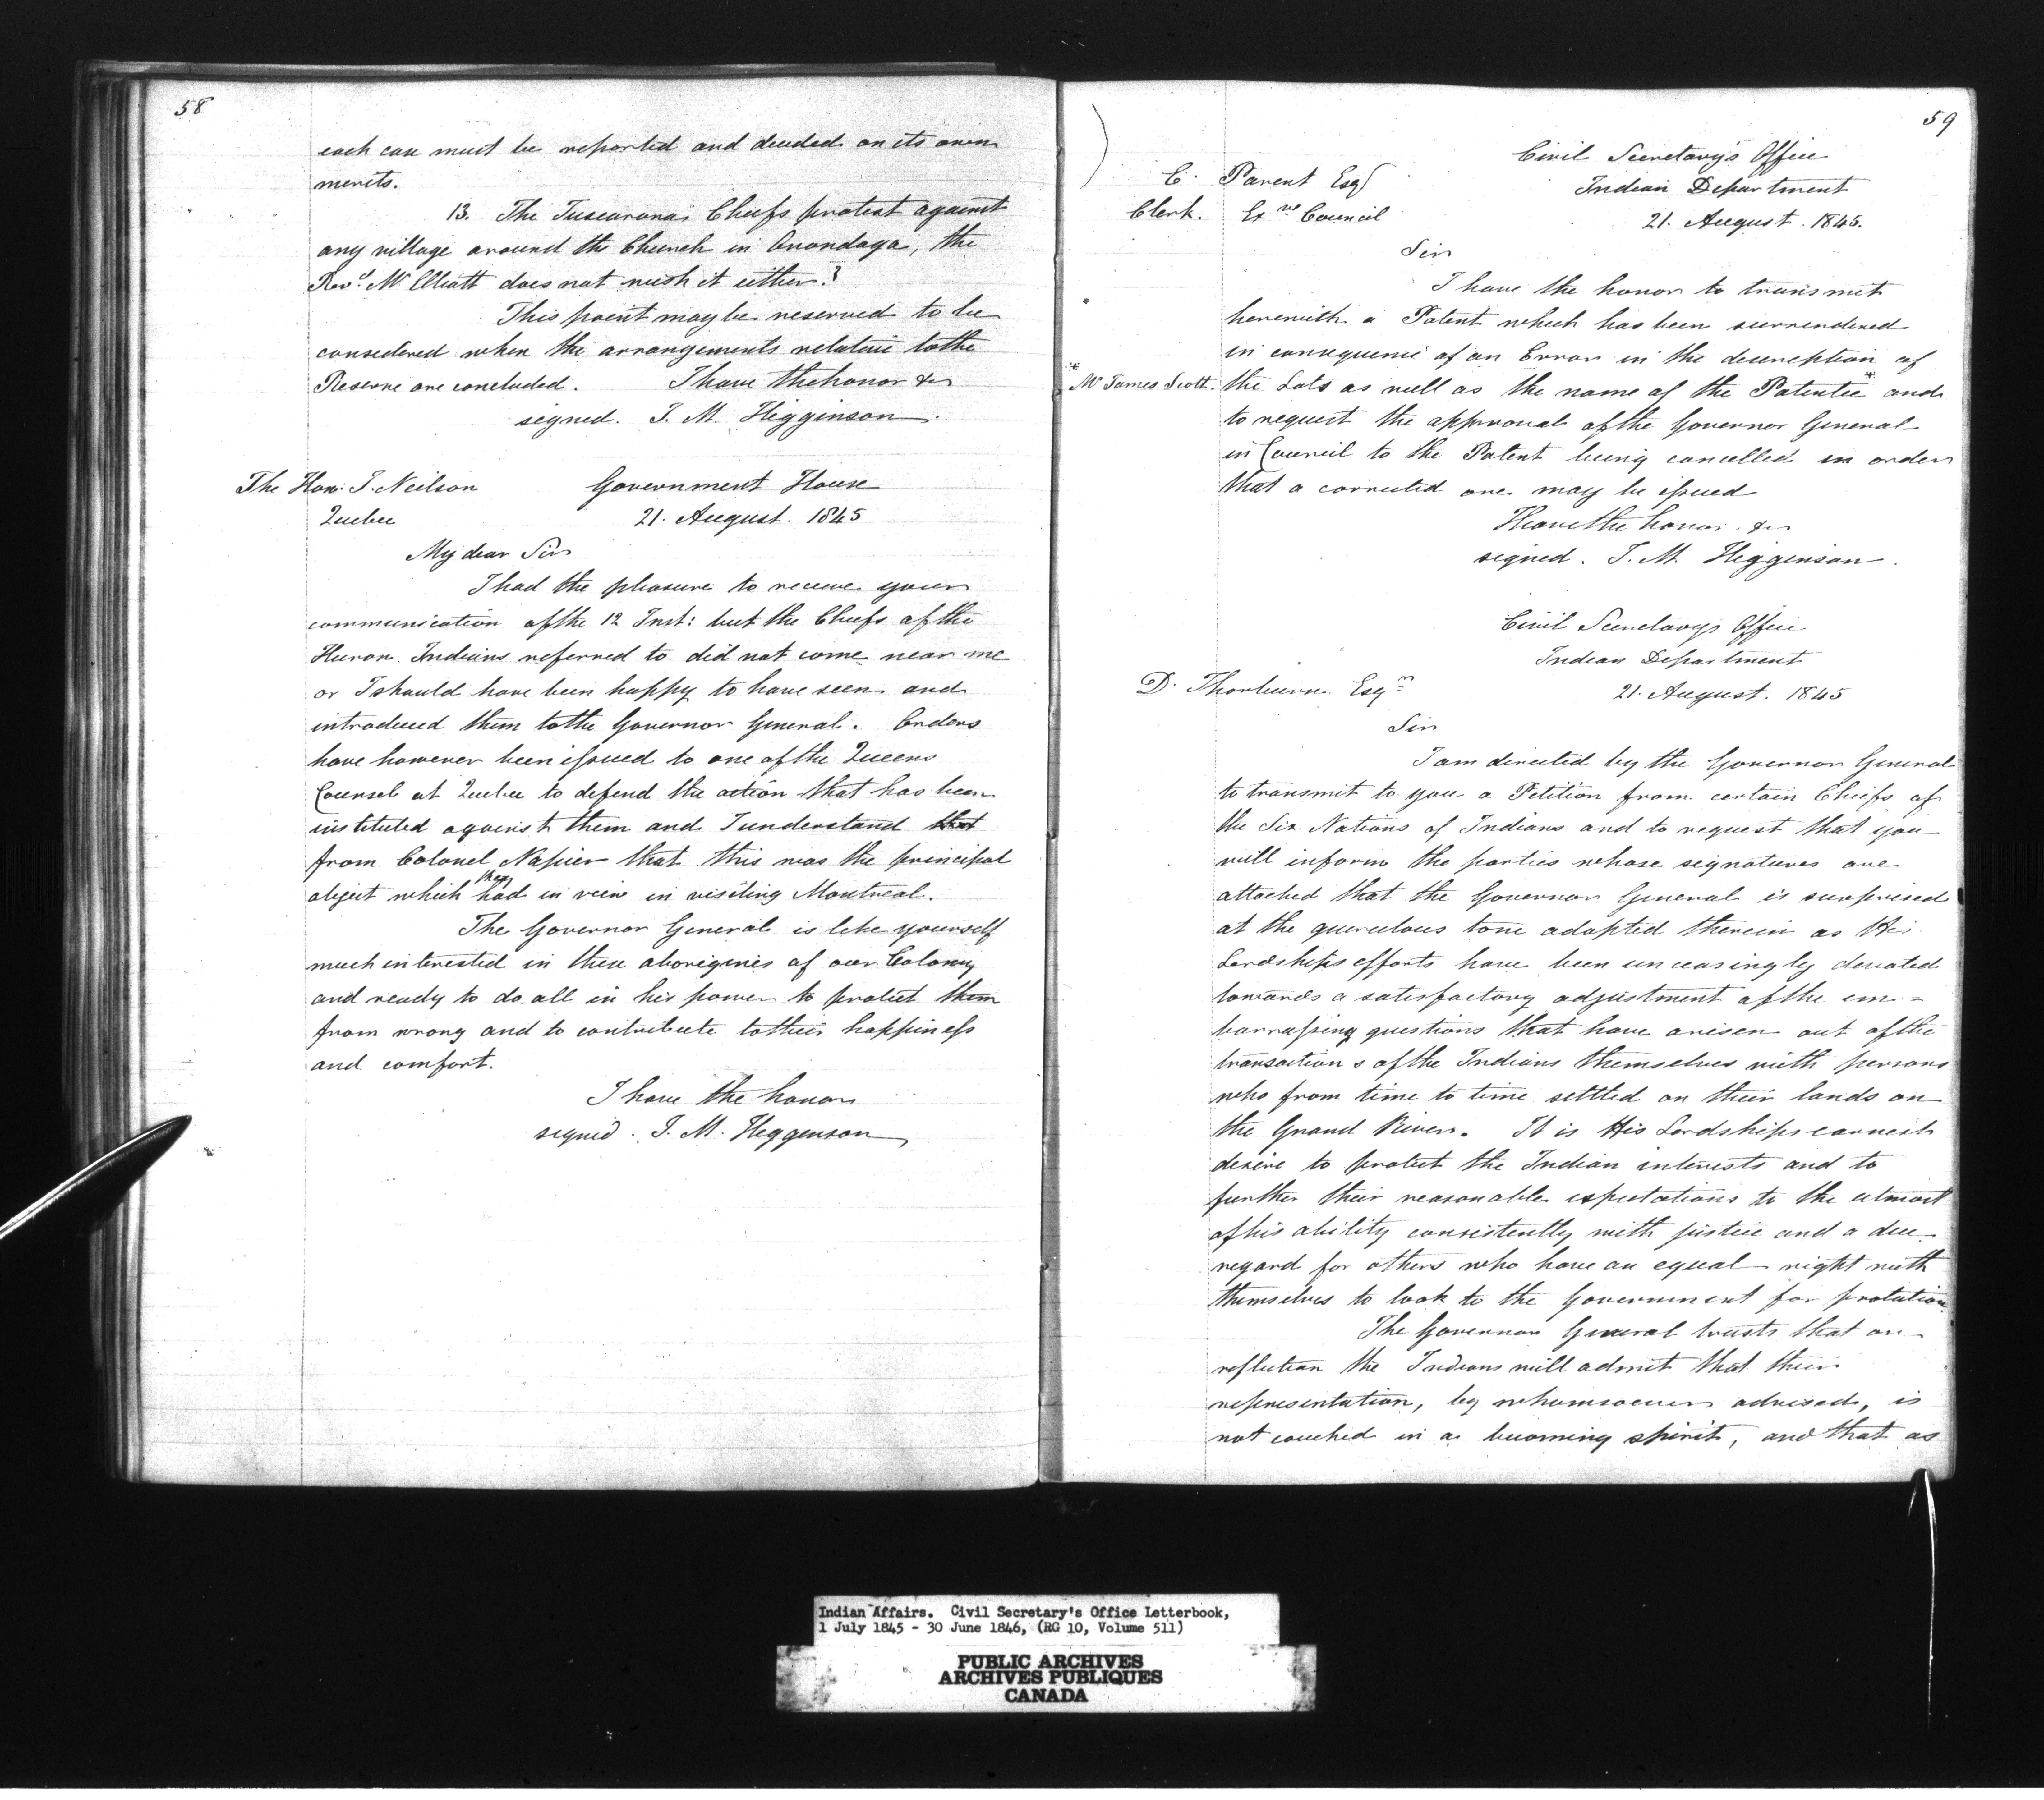 58
each case must be reported and decided on its own
merits.
13. The Tuscarora Chiefs protest against
any village around the Church in Onondaga, the
Revd. Mr Elliott does not wish it either.?
This point may be reserved to be
considered when the arrangements relative to the
Reserve are concluded. I have the honor &c
signed. J. M. Higginson.
The Hon: J. Neilson
Quebec
Government House
21. August. 1845
My dear Sir
I had the pleasure to receive your
communication of the 12 Inst: but the Chiefs of the
Huron Indians referred to did not come near me
or I should have been happy to have seen and
introduced them to the Governor General. Orders
have however been issued to one of the Queens
Counsel at Quebec to defend the action that has been
instituted against them and I understand that
from Colonel Napier that this was the principal
object which they had in view in visiting Montreal.
The Governor General is like yourself
much interested in these aborigines of our Colony
and ready to do all in his power to protect them
from wrong and to contribute to their happiness
and comfort.
I have the honor
signed. J. M. Higginson
59
Civil Secretary's Office
Indian Department
21. August. 1845.
E. Parent Esq
Clerk. Exve Council
Sir
I have the honor to transmit
herewith a Patent which has been surrendered
in consequence of an Error in the description of
* Mr James Scott. the Lots as well as the name of the Patentee * and
to request the approval of the Governor General
in Council to the Patent being cancelled in order
that a corrected one may be issued
I have the honor &c
signed. J. M. Higginson.
Civil Secretary's Office
Indian Department
21. August. 1845
D. Thorburn Esqre
Sir
I am directed by the Governor General
to transmit to you a Petition from certain Chiefs of
the Six Nations of Indians and to request that you
will inform the parties whose signatures are
attached that the Governor General is surprised
at the querulous tone adopted therein as His
Lordships efforts have been unceasingly devoted
towards a satisfactory adjustment of the em=
barrassing questions that have arisen out of the
transactions of the Indians themselves with persons
who from time to time settled on their lands on
the Grand River. It is His Lordships earnest
desire to protect the Indian interests and to
further their reasonable expectations to the utmost
of his ability consistently with justice and a due
regard for others who have an equal right with
themselves to look to the Government for protection.
The Governor General trusts that on
reflection the Indians will admit that their
representation, by whomsoever advised, is
not couched in a becoming spirit, and that as
Indian Affairs. Civil Secretary's Office Letterbook,
1 July 1845 - 30 June 1846, (RG 10, Volume 511)
PUBLIC ARCHIVES
ARCHIVES PUBLIQUES
CANADA